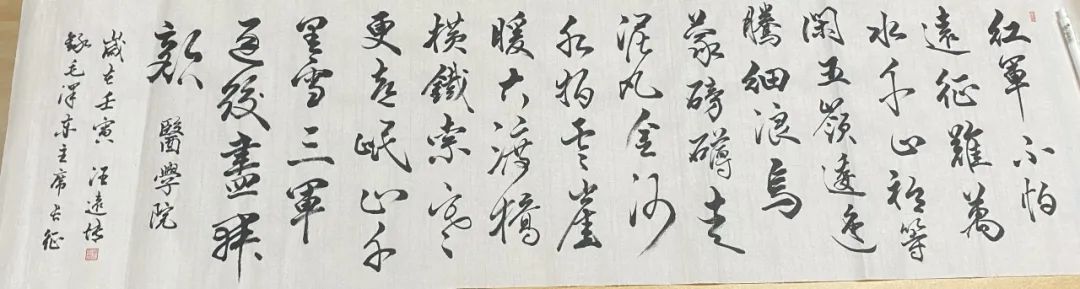 红軍不怕
遠征難萬
水千山祗等
閑五嶺逶迤
騰細浪烏
蒙磅礴走
泥丸金沙
水拍雲崖
暖大渡橋
橫鐵索寒
更喜岷山千
里雪三軍
過後盡開
顏 醫學院
歲在壬寅 汪遠
錄毛澤東主席長征